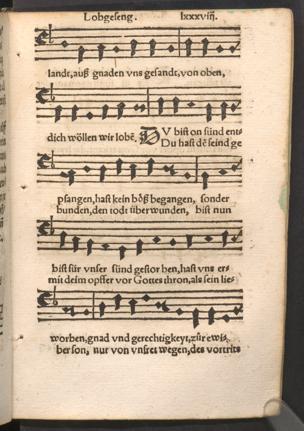 Lobgeseng. lxxxviij.
landt, auß gnaden vns gesandt, von oben,
dich wöllen wir lobẽ. DV bist on sünd ent-
Du hast dẽ feind ge
pfangen, hast kein böß begangen, sonder
bunden, den todt überwunden, bist nun
bist für vnser sünd gestorben, hast vns er-
mit deim opffer vor Gottes thron, als sein lie-
worben, gnad vnd gerechtigkeyt, zůr ewi-
ber son, nur von vnsret wegen, des vortrits